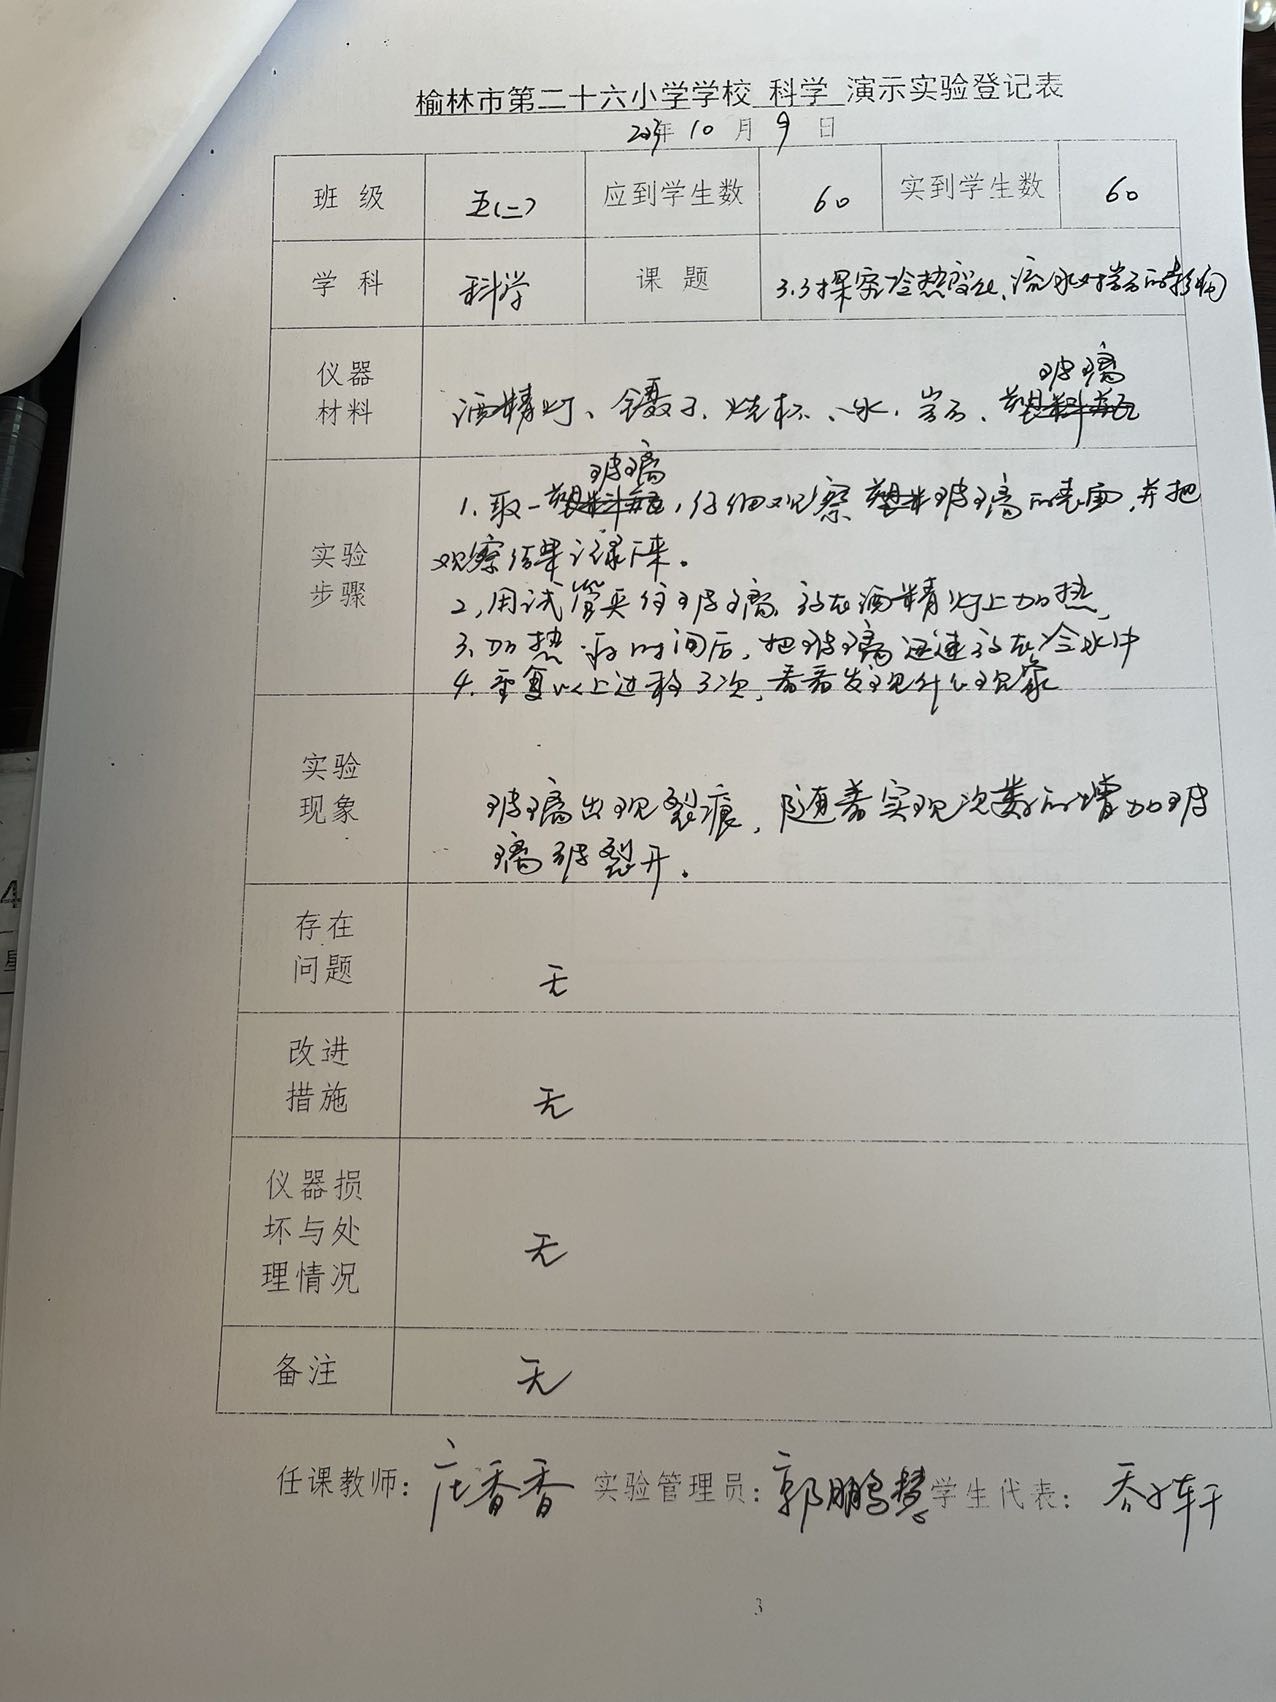 榆林市第二十六小学学校 科学 演示实验登记表
年 10 月 9 日
班级 五(二) 应到学生数 60 实到学生数 60
学科 科学 课题 3.3探究冷热变化、流水对岩石的影响
玻璃
仪器材料 酒精灯、镊子、烧杯、水、岩石、塑料瓶
玻璃
1.取一塑料瓶,仔细观察塑料玻璃的表面,并把
实验步骤 观察结果记录下来。
2.用试管夹住玻璃放在酒精灯上加热,
3.加热一段时间后,把玻璃迅速放在冷水中
4.重复以上过程3次,看看发现什么现象
实验现象 玻璃出现裂痕,随着实现次数的增加玻
璃被裂开。
存在问题 无
改进措施 无
仪器损坏与处理情况 无
备注 无
任课教师: 庄香香 实验管理员: 郭鹏慧 学生代表: 乔子轩
3